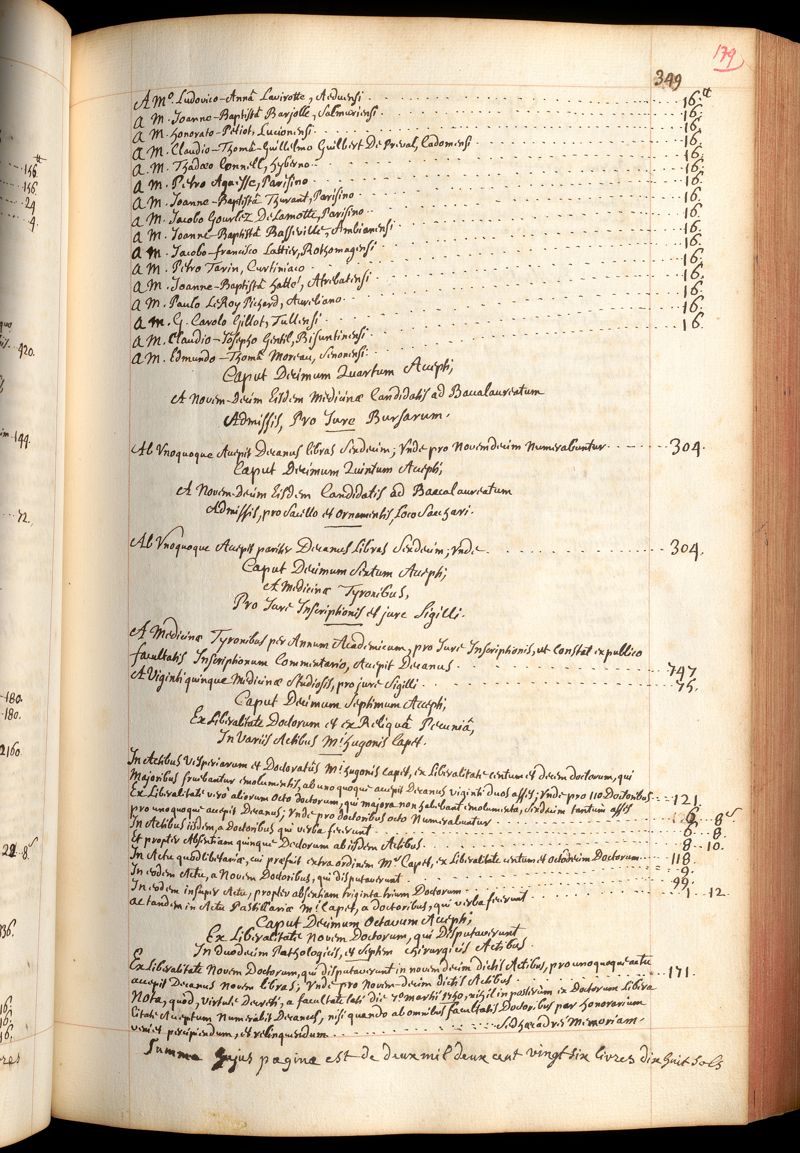 179
349
A M.º Ludovico-Annâ Lavirotte, Aeduensi 16.tt
A M. Joanne-Baptistâ Barjolle, Salmuriensi. 16.
A M. Honorato-Petiot, Lucionensi. 16.
A M. Claudio-Thomâ-Guillelmo Guilbert De Preval, Cadomensi 16.
A M. Thadaeo Connell, Hyberno 16.
A M. Petro Agaisse, Parisino 16.
A M. Joanne-Baptistâ Thurant, Parisino 16.
A M. Jacobo Gourlez DeLamotte, Parisino 16.
A M. Joanne-Baptistâ Basseville, Ambianensi 16.
A M. Jacobo-francisco Lattier, Rothomagensi 16.
A M. Petro Tarin, Curtiniaco 16.
A M. Joanne-Baptistâ hatté, Atrebatensi 16.
A M. Paulo LeRoy Pichard, Aureliano 16.
A M. G. Carolo Gillot, Tullensi 16.
A M. Claudio-Josepho Gentil, Bisuntinensi 16.
A M. Edmundo-Thomâ Moreau, Senonensi 16.
Caput Decimum Quartum Accepti,
A Novem-Decim Eisdem Medicinae Candidatis ad Baccalaureatum
Admissis, Pro Jure Bursarum.
Ab Unoquoque Accepit Decanus libras Sexdecim; Unde pro Novemdecim Numerabuntur 304.
Caput Decimum Quintum Accepti,
A Novem-Decim Eisdem Candidatis ad Baccalaureatum
Admissis, pro Sacello et ornamentis, Loco Sacchari.
Ab Unoquoque Accepit pariter Decanus Libras Sexdecim; Unde 304.
Caput Decimum Sextum Accepti,
A Medicinae Tyronibus,
Pro Jure Inscriptionis et jure Sigilli.
A Medicinae Tyronibus per Annum Academicum, pro Jure Inscriptionis, ut Constat ex publico
facultatis Inscriptionum Commentario, Accepit Decanus 747
A Viginti quinque Medicinae Studiosis, pro jure Sigilli 75.
Caput Decimum Septimum Accepti,
Ex Liberalitate Doctorum et ex Reliquâ Pecuniâ,
In Variis Actibus M.i hugonis Capet.
In Actibus Vesperiarum et Doctoratûs M.i hugonis Capet, ex Liberalitate centum et decem doctorum, qui
Majoribus fruebantur emolumentis, ab unoquoque accepit Decanus viginti duos asses; Unde pro 110 Doctoribus 121.
Ex Liberalitate vero aliorum octo doctorum, qui majora non habebant emolumenta, sexdecim tantum asses
pro unoquoque accepit Decanus; Unde pro doctoribus octo Numerabuntur 6. 8s
In Actibus iisdem, a Doctoribus qui verba fecerunt 6 8.
Et propter Absentiam quinque Doctorum ab iisdem Actibus 8. 10.
In Actu quodlibetario, cui praefuit extra ordinem M.r Capet, ex Liberalitate centum et octodecim Doctorum 118.
In eodem Actu, a Novem Doctoribus, qui disputaverunt 9.
In eodem insuper Actu, propter absentiam triginta trium Doctorum 99.
ac tandem in Actu Pastillariae M.i Capet, a doctoribus, qui verba fecerunt 1. 12
Caput Decimum Octavum Accepti,
Ex Liberalitate Novem Doctorum, qui Disputaverunt
In duodecim Pathologicis, et Septem chirurgicis Actibus
Ex Liberalitate Novem Doctorum, qui disputaverunt in novemdecim dictis Actibus, pro unoquoque actu
accepit Decanus novem libras; Unde pro Novem-decim dictis Actibus 171.
Nota, quod, virtute Decreti, a facultate lati die martii 1740, nihil in posterum ex Doctorum Libera
litate Acceptum Numerabit Decanus, nisi quando ab omnibus facultatis Doctoribus par honorarium
veniet percipiendum, et relinquendum Memoriam
Summa hujus paginae est de deux mil deux cent vingt six livres dix huit sols